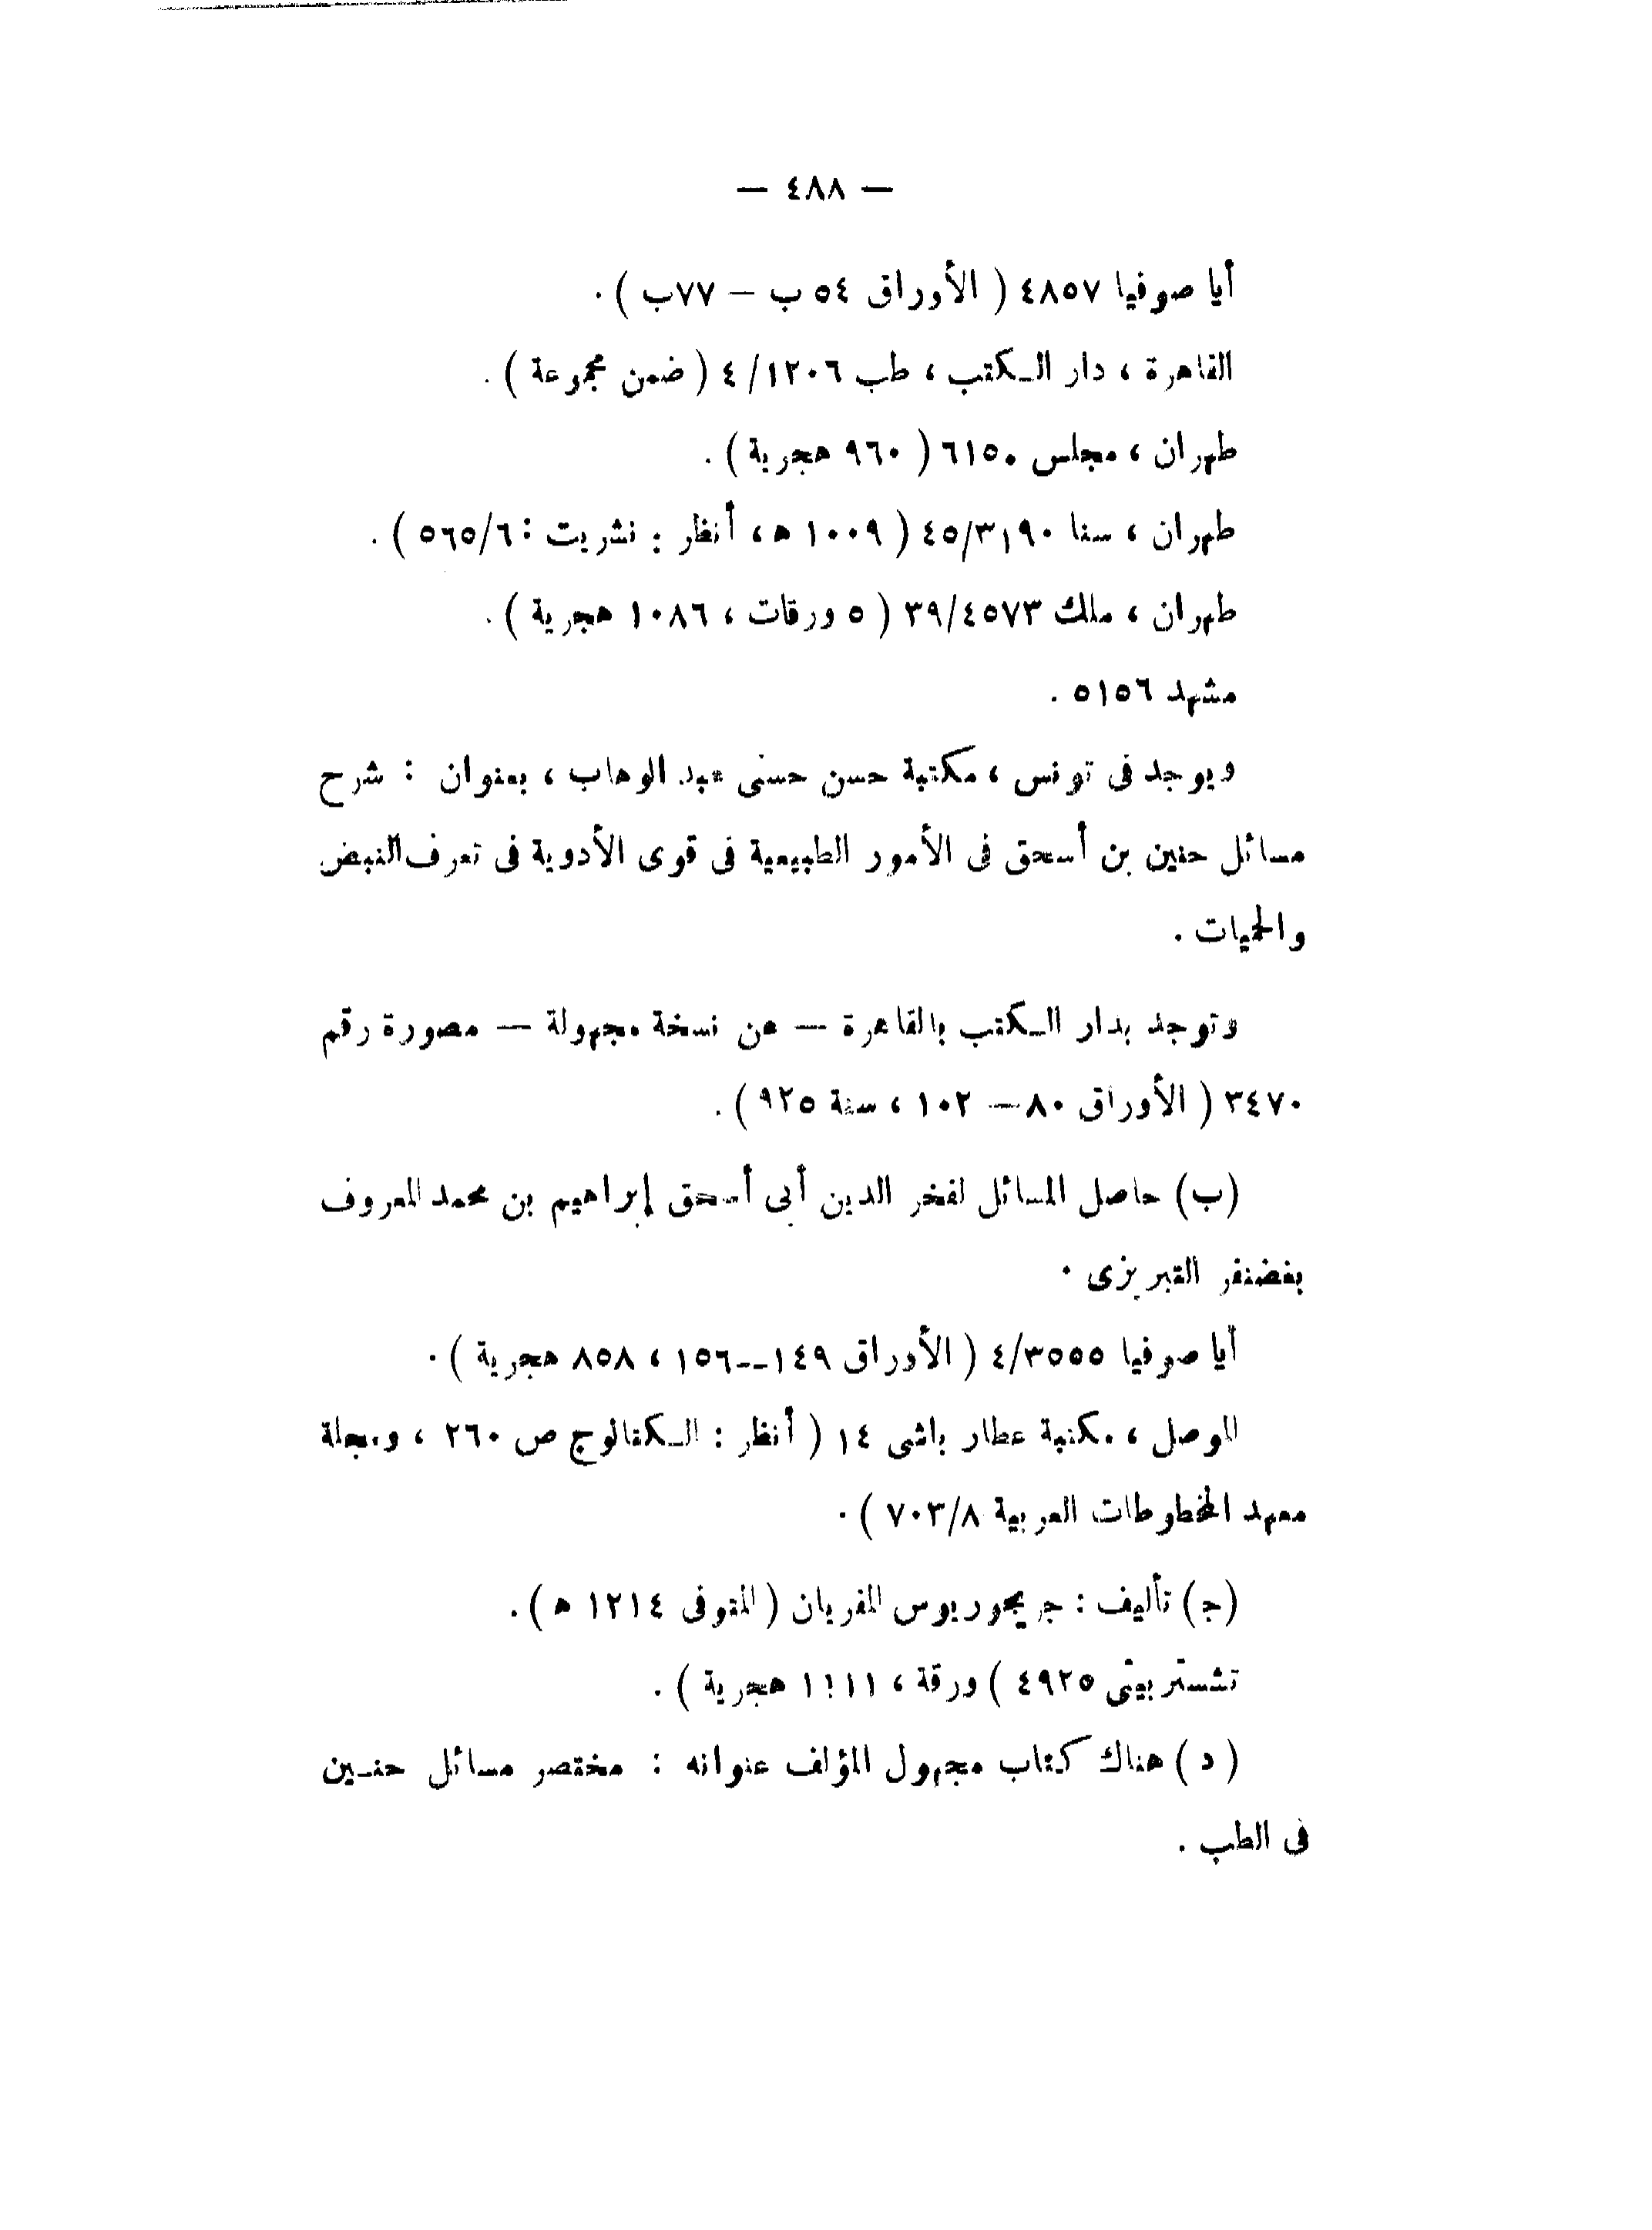 — ٤٨٨ —
أيا صوفيا ٤٨٥٧ ( الأوراق ٥٤ ب — ٧٧ب ) .
القاهرة ، دار الكتب ، طب ٤/١٢٠٦ ( ضمن مجموعة ) .
طهران ، مجلس ٦١٥٠ ( ٩٦٠ هجرية ) .
طهران ، سنا ٤٥/٣١٩٠ ( ١٠٠٩ ه ، أنظر : نشريت : ٥٦٥/٦ ) .
طهران ، ملك ٣٩/٤٥٧٣ ( ٥ ورقات ، ١٠٨٦ هجرية ) .
مشهد ٥١٥٦ .
ويوجد فى تونس ، مكتبة حسن حسنى عبد الوهاب ، بعنوان : شرح
مسائل حنين بن أسحق فى الأمور الطبيعية فى قوى الأدوية فى تعرف النبض
والحميات .
وتوجد بدار الكتب بالقاهرة — عن نسخة مجهولة — مصورة رقم
٣٤٧٠ ( الأوراق ٨٠ — ١٠٢ ، سنة ٩٢٥ ) .
(ب) حاصل المسائل لفخر الدين أبى أسحق إبراهيم بن محمد المعروف
بغضنفر التبريزى .
أيا صوفيا ٤/٣٥٥٥ ( الأوراق ١٤٩--١٥٦ ، ٨٥٨ هجرية ) .
الموصل ، مكتبة عطار باشى ١٤ ( أنظر : الكتالوج ص ٢٦٠ ، ومجلة
معهد المخطوطات العربية ٧٠٣/٨ ) .
(ج) تأليف : جريجوريوس المفريان ( المتوفى ١٢١٤ ه ) .
تشستر بيتى ٤٩٢٥ ) ورقة ، ١١١١ هجرية ) .
( د ) هناك كتاب مجهول المؤلف عنوانه : مختصر مسائل حنين
فى الطب .